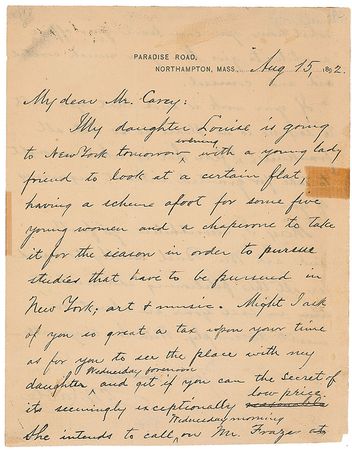 PARADISE ROAD,
NORTHAMPTON, MASS. Aug 15, 1892.
My dear Mr. Carey:
My daughter Louise is going
evening
to New York tomorrow with a young lady
friend to look at a certain flat,
having a scheme afoot for some five
young women and a chaperone to take
it for the season in order to pursue
studies that have to be pursued in
New York; art & music. Might I ask
of you so great a tax upon your time
as for you to see the place with my
Wednesday forenoon
daughter, and get if you can the secret of
low price.
its seemingly exceptionally reasonable
Wednesday morning
She intends to call on Mr. Fraze at